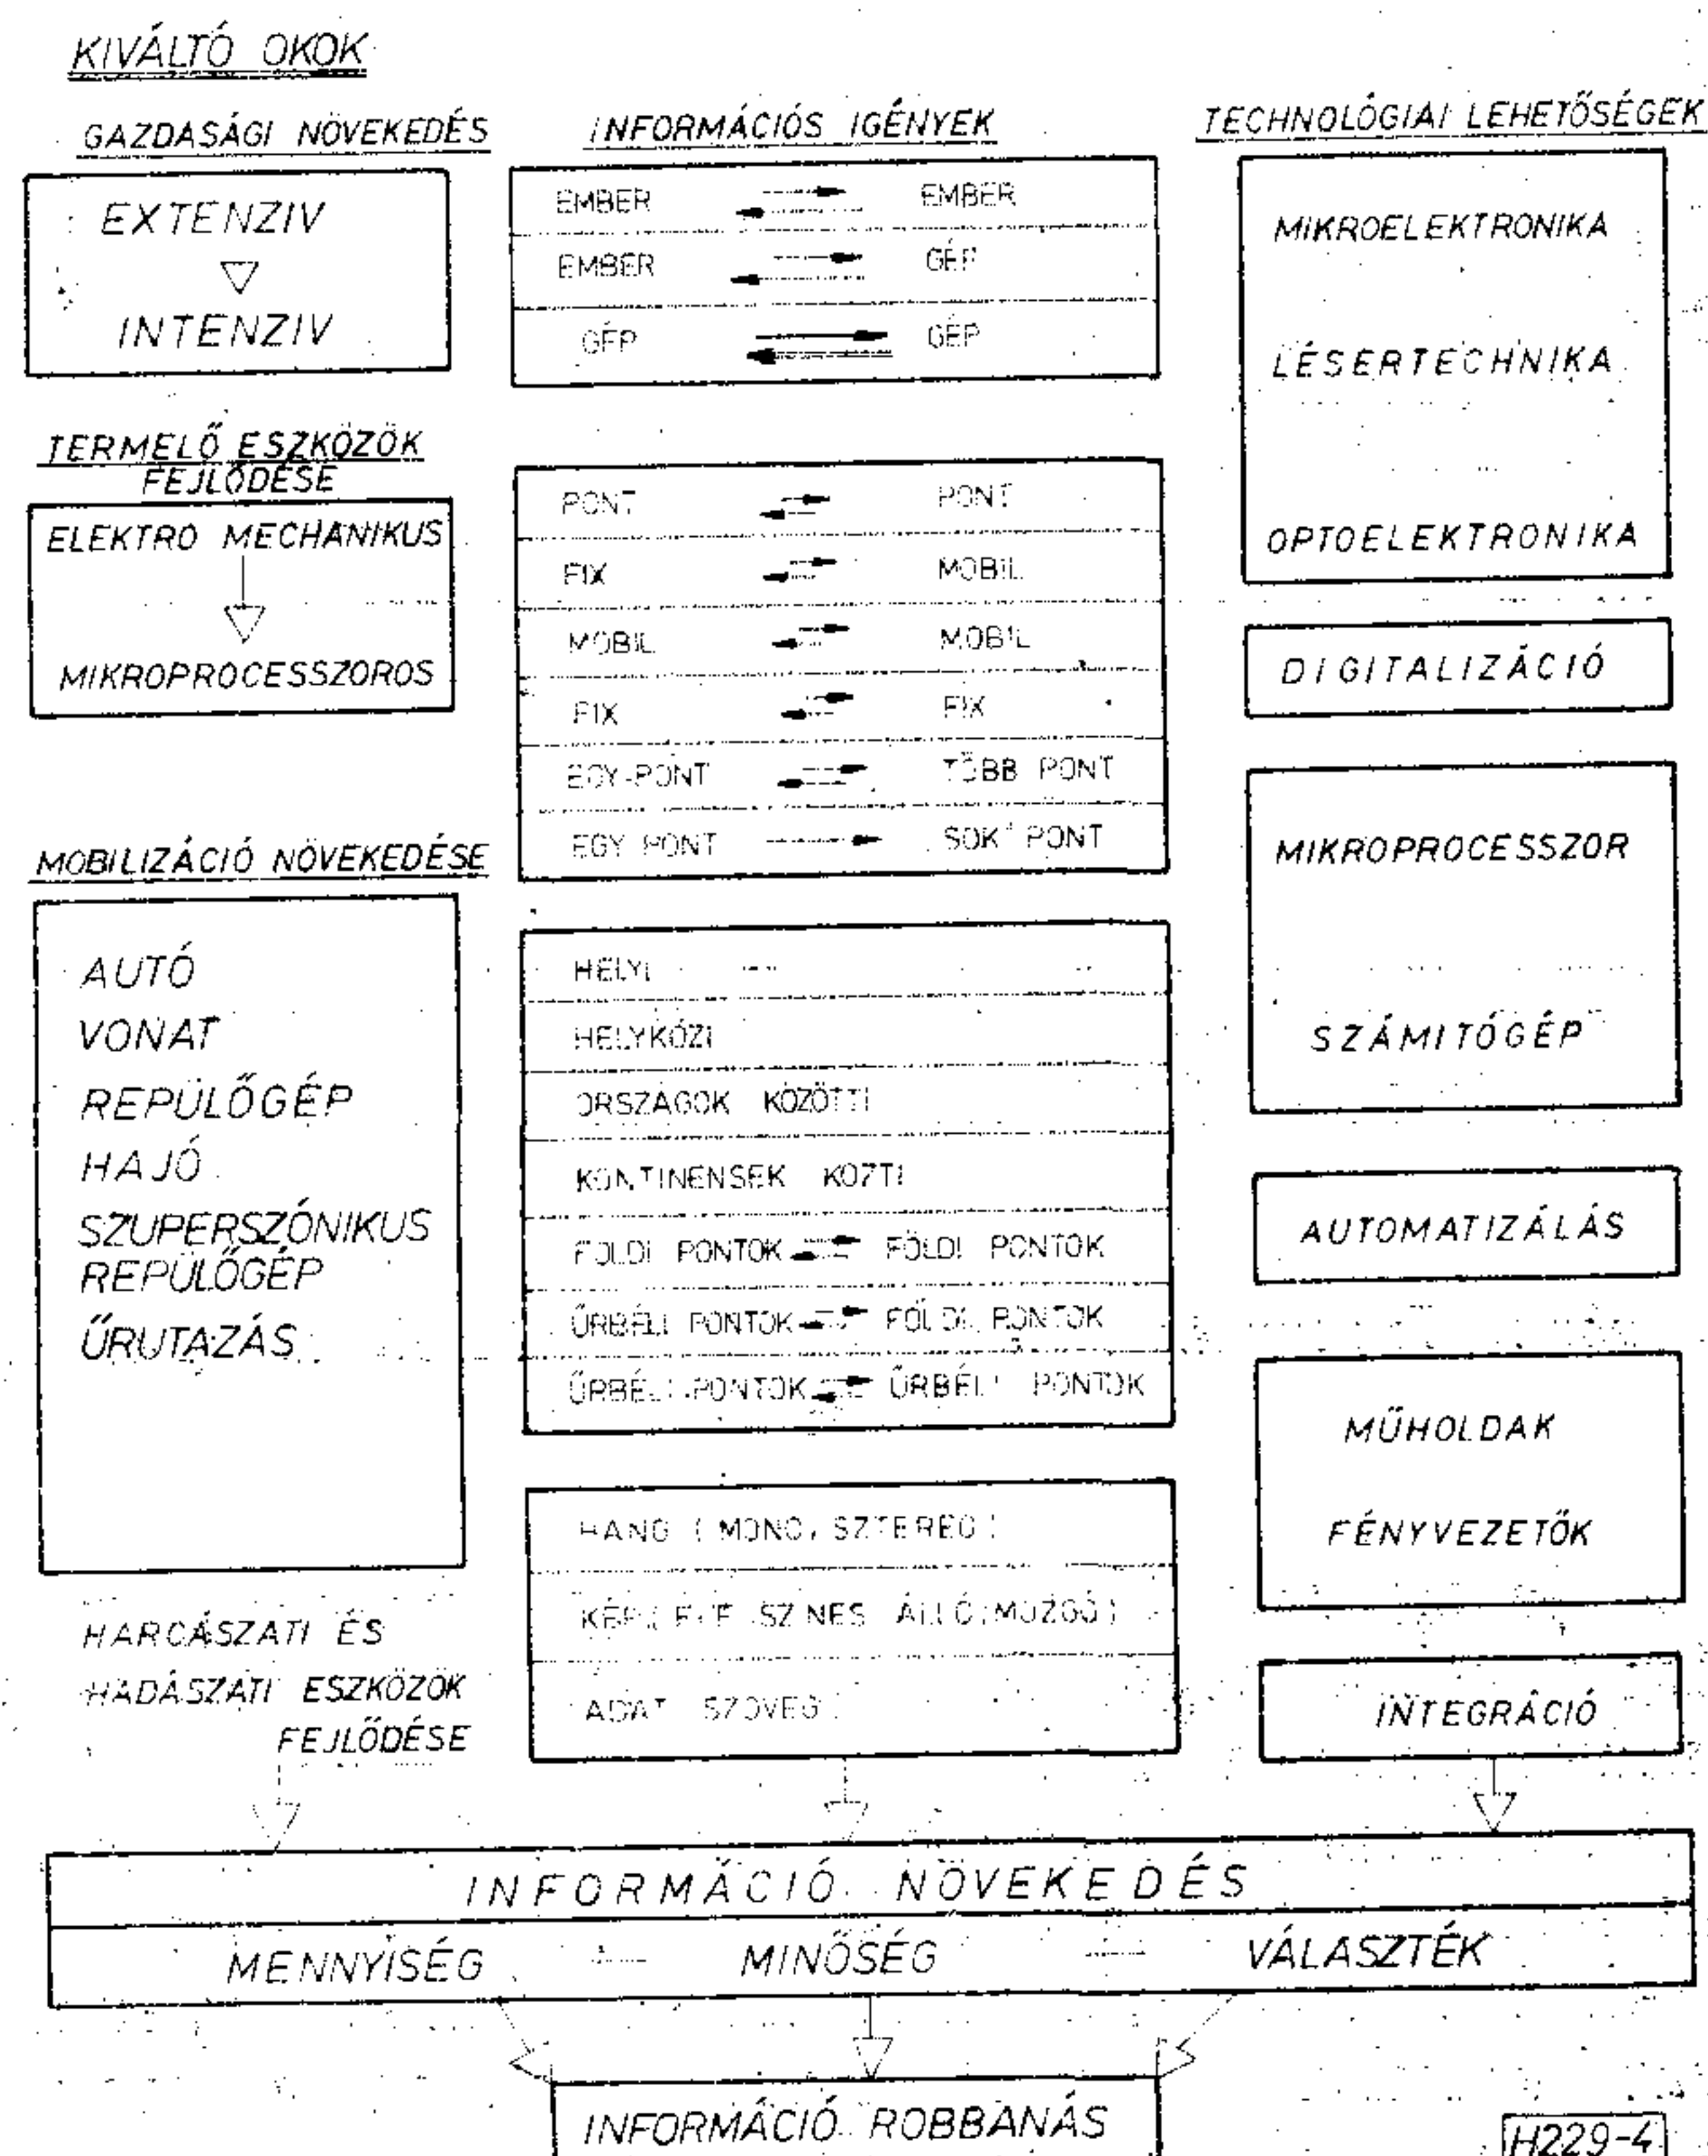 KIVÁLTÓ OKOK
GAZDASÁGI NÖVEKEDÉS
EXTENZIV
INTENZIV
TERMELŐ ESZKÖZÖK
FEJLŐDÉSE
ELEKTRO MECHANIKUS
MIKROPROCESSZOROS
MOBILIZÁCIÓ NÖVEKEDÉSE
AUTÓ
VONAT
REPÜLŐGÉP
HAJÓ
SZUPERSZÓNIKUS
REPÜLŐGÉP
ŰRUTAZÁS
HARCÁSZATI ÉS
HADÁSZATI ESZKÖZÖK
FEJLŐDÉSE
INFORMÁCIÓS IGÉNYEK
EMBER EMBER
EMBER GÉP
GÉP GÉP
PONT PONT
FIX MOBIL
MOBIL MOBIL
FIX FIX
EGY-PONT TÖBB PONT
EGY PONT SOK PONT
HELYI
HELYKÖZI
ORSZÁGOK KÖZÖTTI
KONTINENSEK KÖZTI
FÖLDI PONTOK FÖLDI PONTOK
ŰRBÉLI PONTOK FÖLDI PONTOK
ŰRBÉLI PONTOK ŰRBÉLI PONTOK
HANG (MONO, SZTEREO)
KÉP ( SZINES ÁLLÓ, MOZGÓ)
ADAT SZÖVEG
TECHNOLÓGIAI LEHETŐSÉGEK
MIKROELEKTRONIKA
LÉSERTECHNIKA
OPTOELEKTRONIKA
DIGITALIZÁCIÓ
MIKROPROCESSZOR
SZÁMITÓGÉP
AUTOMATIZÁLÁS
MŰHOLDAK
FÉNYVEZETŐK
INTEGRÁCIÓ
INFORMÁCIÓ NÖVEKEDÉS
MENNYISÉG - MINŐSÉG - VÁLASZTÉK
INFORMÁCIÓ ROBBANÁS
H229-4